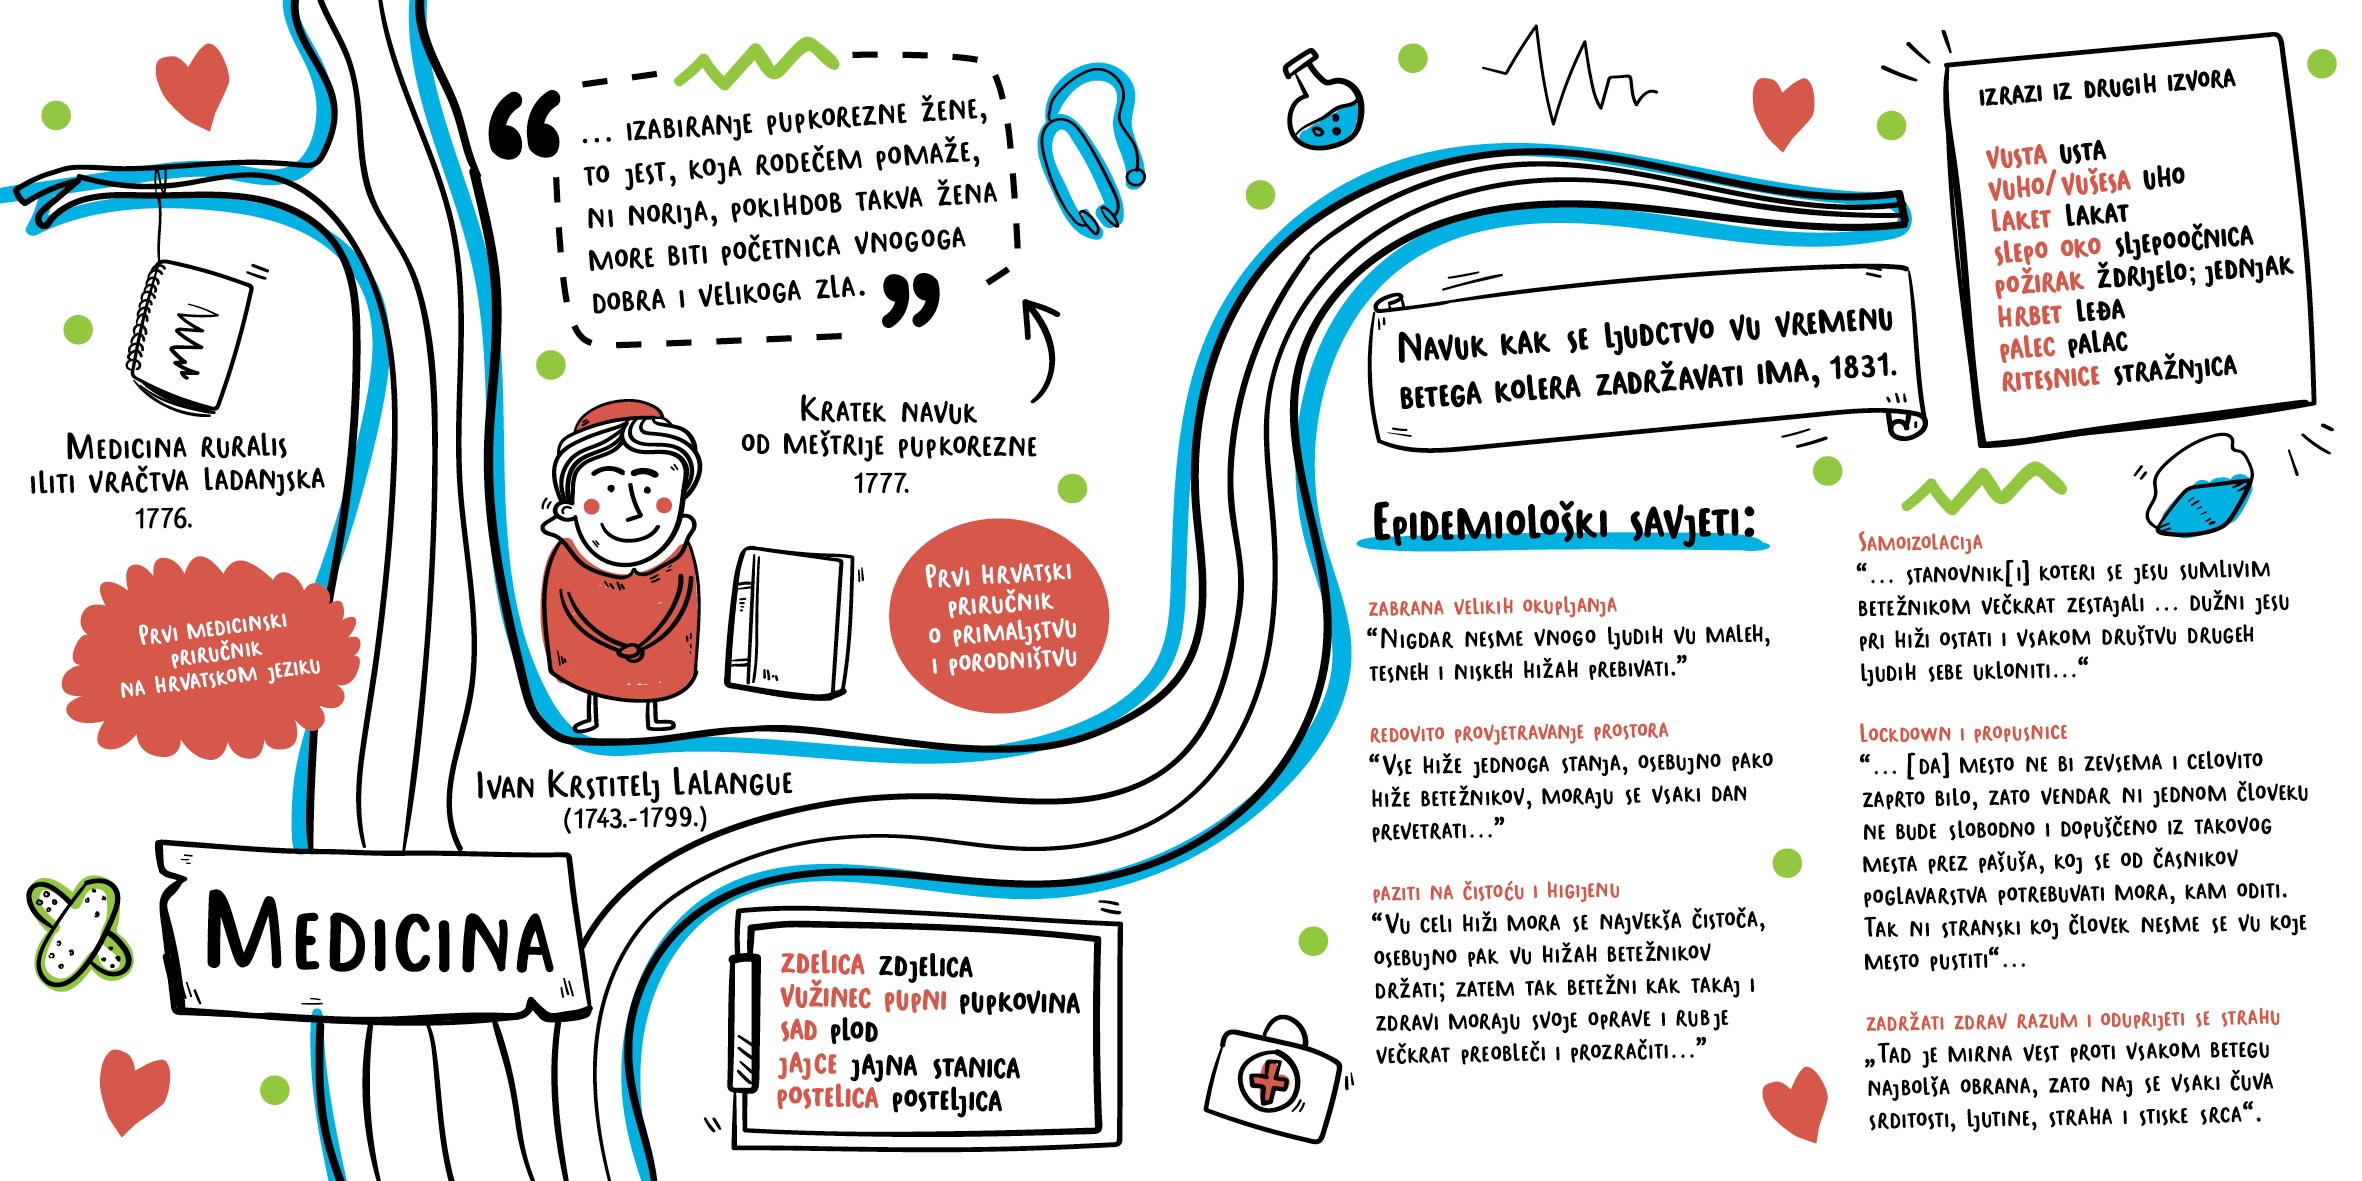 Medicina ruralis
iliti vračtva ladanjska
1776.
Prvi medicinski
priručnik
na hrvatskom jeziku
Medicina
“
... izabiranje pupkorezne žene,
to jest, koja rodečem pomaže,
ni norija, pokihdob takva žena
more biti početnica vnogoga
dobra i velikoga zla.
”
Kratek navuk
od meštrije pupkorezne
1777.
Prvi hrvatski
priručnik
o primaljstvu
i porodništvu
Ivan Krstitelj Lalangue
(1743.-1799.)
zdelica zdjelica
vužinec pupni pupkovina
sad plod
jajce jajna stanica
postelica posteljica
Navuk kak se ljudctvo vu vremenu
betega kolera zadržavati ima, 1831.
izrazi iz drugih izvora
vusta usta
vuho/vušesa uho
laket lakat
slepo oko sljepoočnica
požirak ždrijelo; jednjak
hrbet leđa
palec palac
ritesnice stražnjica
Epidemiološki savjeti:
zabrana velikih okupljanja
“Nigdar nesme vnogo ljudih vu maleh,
tesneh i niskeh hižah prebivati.”
redovito provjetravanje prostora
“Vse hiže jednoga stanja, osebujno pako
hiže betežnikov, moraju se vsaki dan
prevetrati...”
paziti na čistoću i higijenu
“Vu celi hiži mora se najvekša čistoča,
osebujno pak vu hižah betežnikov
držati; zatem tak betežni kak takaj i
zdravi moraju svoje oprave i rubje
večkrat preobleči i prozračiti...”
Samoizolacija
“... stanovnik[i] koteri se jesu sumlivim
betežnikom večkrat zestajali ... dužni jesu
pri hiži ostati i vsakom društvu drugeh
ljudih sebe ukloniti...“
Lockdown i propusnice
“... [da] mesto ne bi zevsema i celovito
zaprto bilo, zato vendar ni jednom človeku
ne bude slobodno i dopuščeno iz takovog
mesta prez pašuša, koj se od časnikov
poglavarstva potrebuvati mora, kam oditi.
Tak ni stranski koj človek nesme se vu koje
mesto pustiti“...
zadržati zdrav razum i oduprijeti se strahu
„Tad je mirna vest proti vsakom betegu
najbolša obrana, zato naj se vsaki čuva
srditosti, ljutine, straha i stiske srca“.